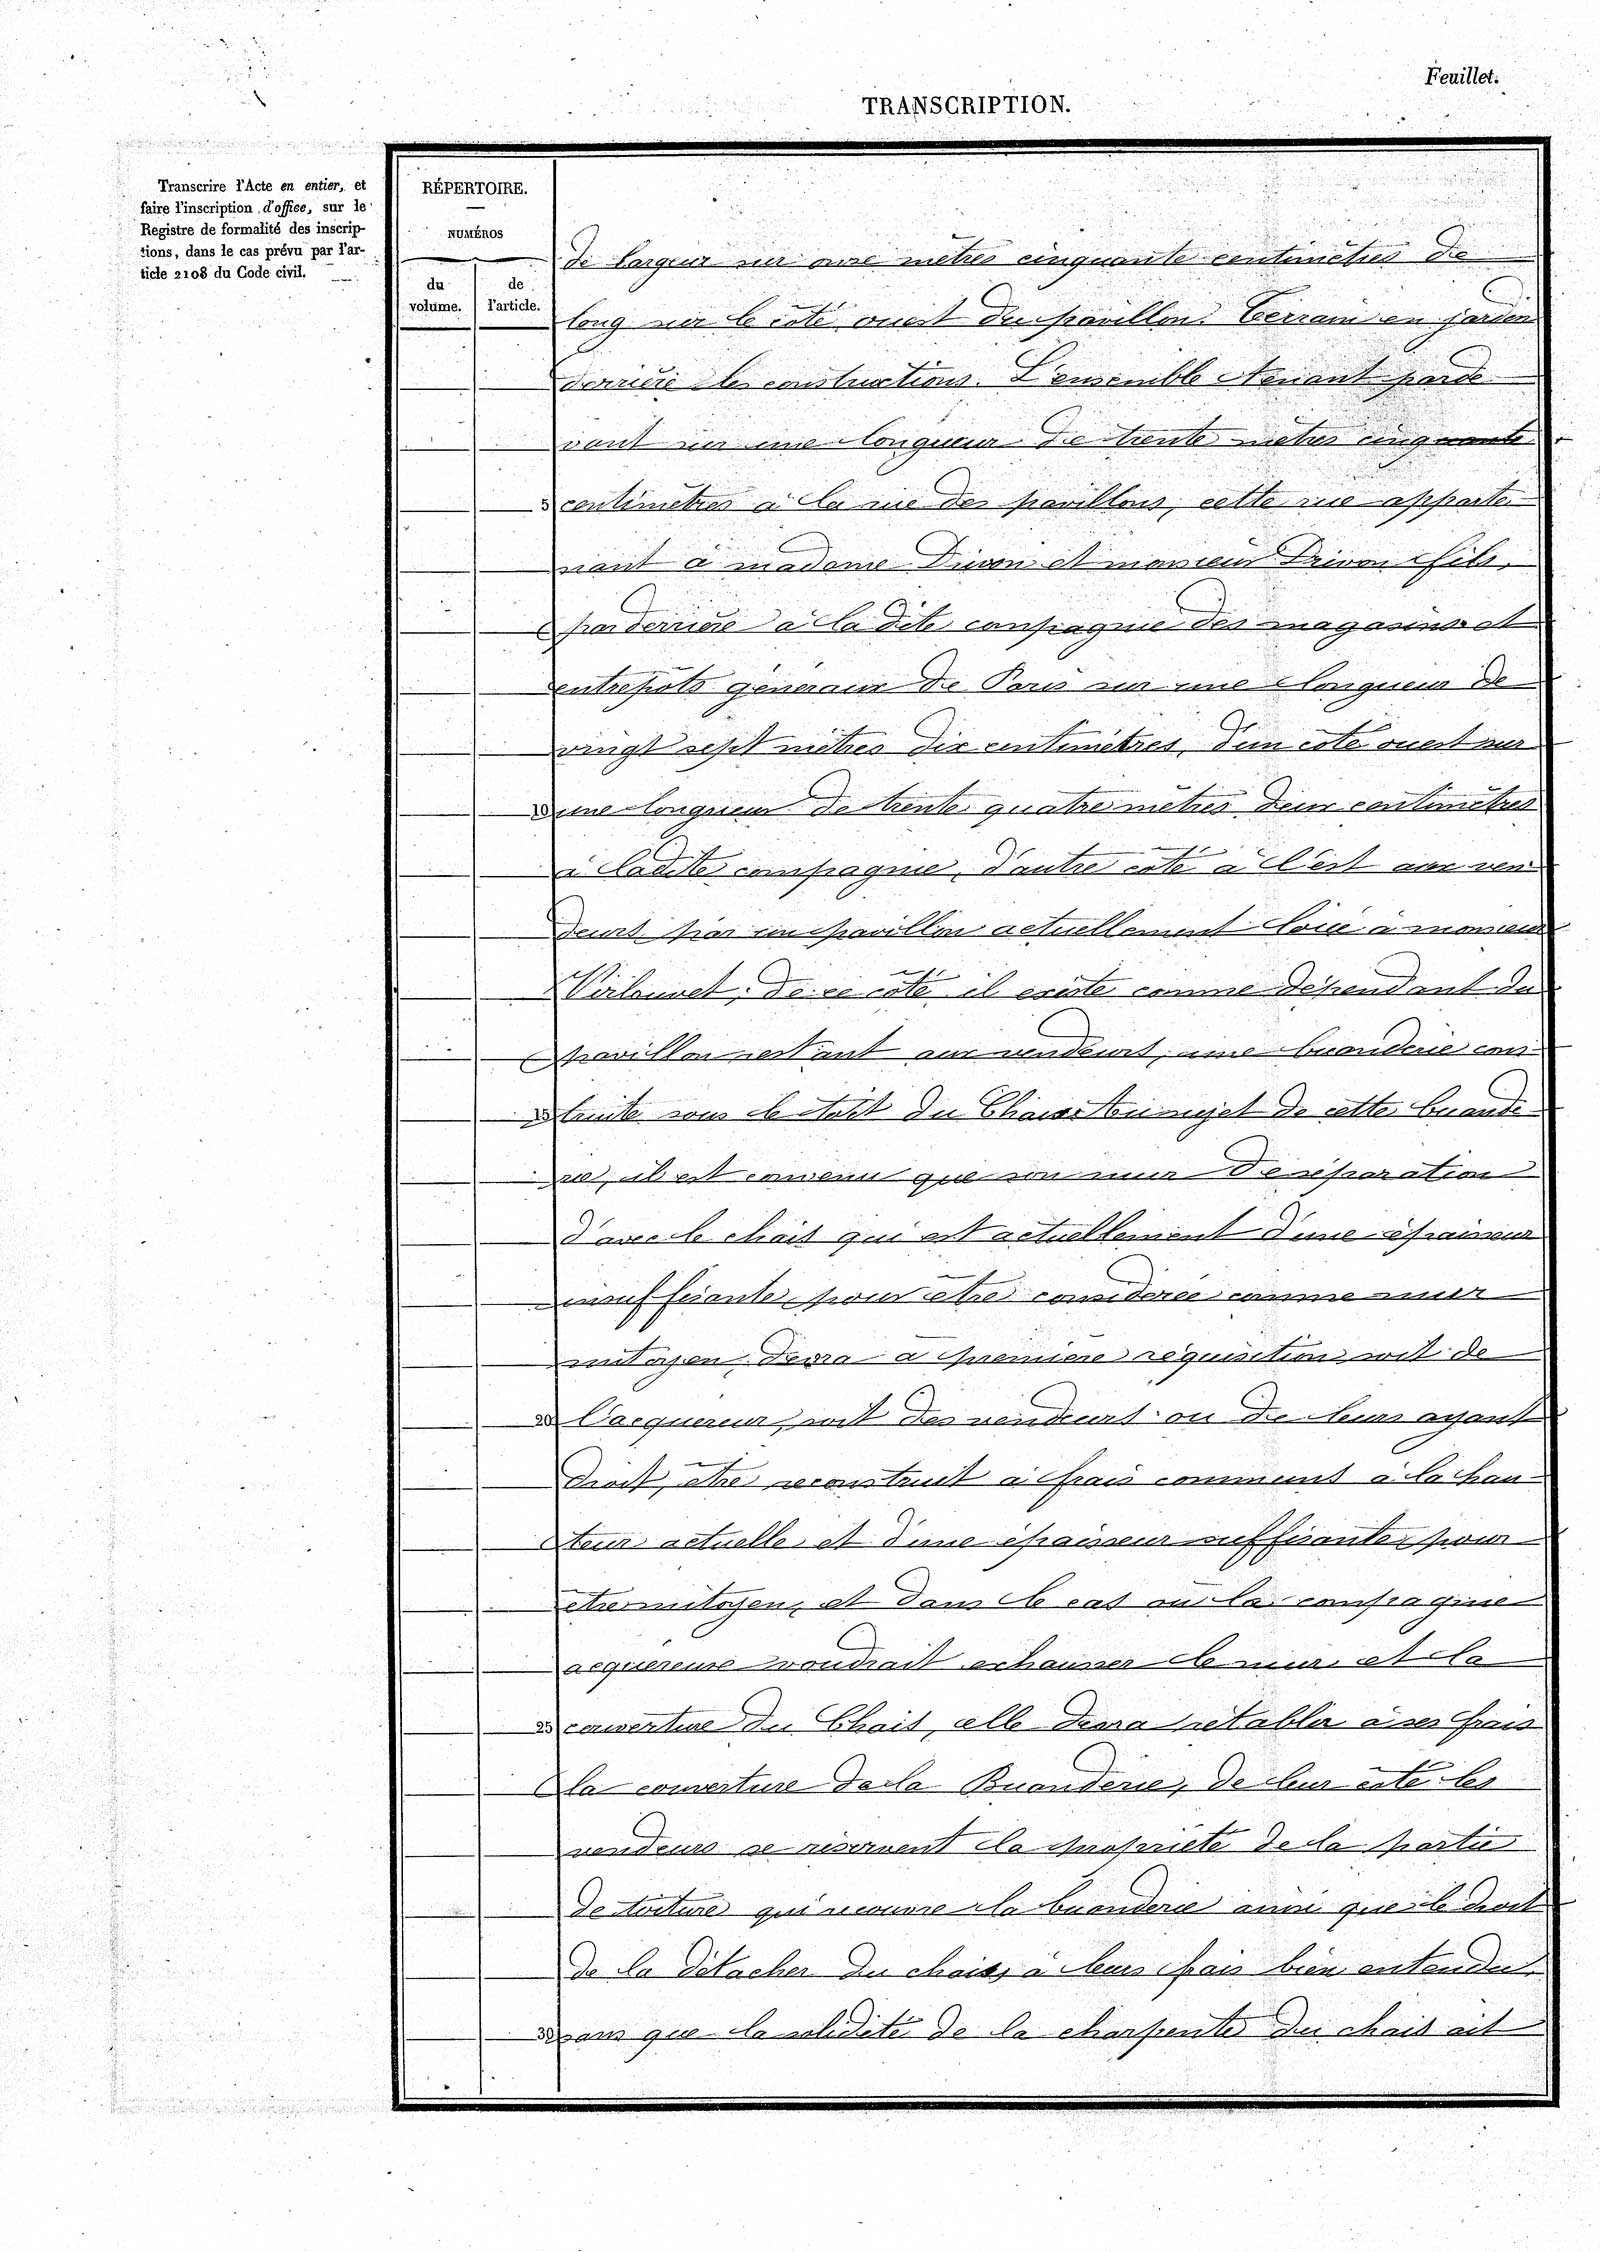 Feuillet.
TRANSCRIPTION.
Transcrire l'Acte en entier, et
faire l'inscription d'office, sur le
Registre de formalité des inscrip-
tions, dans le cas prévu par l'ar-
ticle 2108 du Code civil.
RÉPERTOIRE.
NUMÉROS
du
volume.
de
l'article.
de largeur sur onze mètres cinquante centimètres de
long sur le côté ouest du pavillon. Terrain en jardin
derrière les constructions. L'ensemble tenant par de
vant sur une longueur de trente mètres cinquante
5 centimètres à la rue des pavillons, cette rue apparte
nant à madame Drivon et monsieur Drivon fils,
par derrière à la dite compagnie des magasins et
entrepôts généraux de Paris sur une longueur de
vingt sept mètres dix centimètres, d'un côté ouest sur
10 une longueur de trente quatre mètres deux centimètres
à ladite compagnie, d'autre côté à l'est aux ven
deurs par un pavillon actuellement loué à monsieur
de ce côté il existe comme dépendant du
pavillon restant aux vendeurs, une buanderie cons
15 truite sous le toit du Chais. Au sujet de cette buande
rie, il est convenu que son mur de séparation
d'avec le chais qui est actuellement d'une épaisseur
insuffisante pour être considérée comme mur
mitoyen devra à première réquisition soit de
20 l'acquereur, soit des vendeurs ou de leurs ayant
droit, être reconstruit à frais communs à la hau
teur actuelle et d'une épaisseur suffisante pour
être mitoyen, et dans le cas où la compagnie
acquereuse voudrait exhausser le mur et la
25 couverture du Chais, elle devra rétablir à ses frais
la couverture de la Buanderie, de leur côté les
vendeurs se réservent la propriété de la partie
de toiture qui recouvre la buanderie ainsi que le droit
de la détacher du chais, à leurs frais bien entendu
30 sans que la solidité de la charpente du chais ait